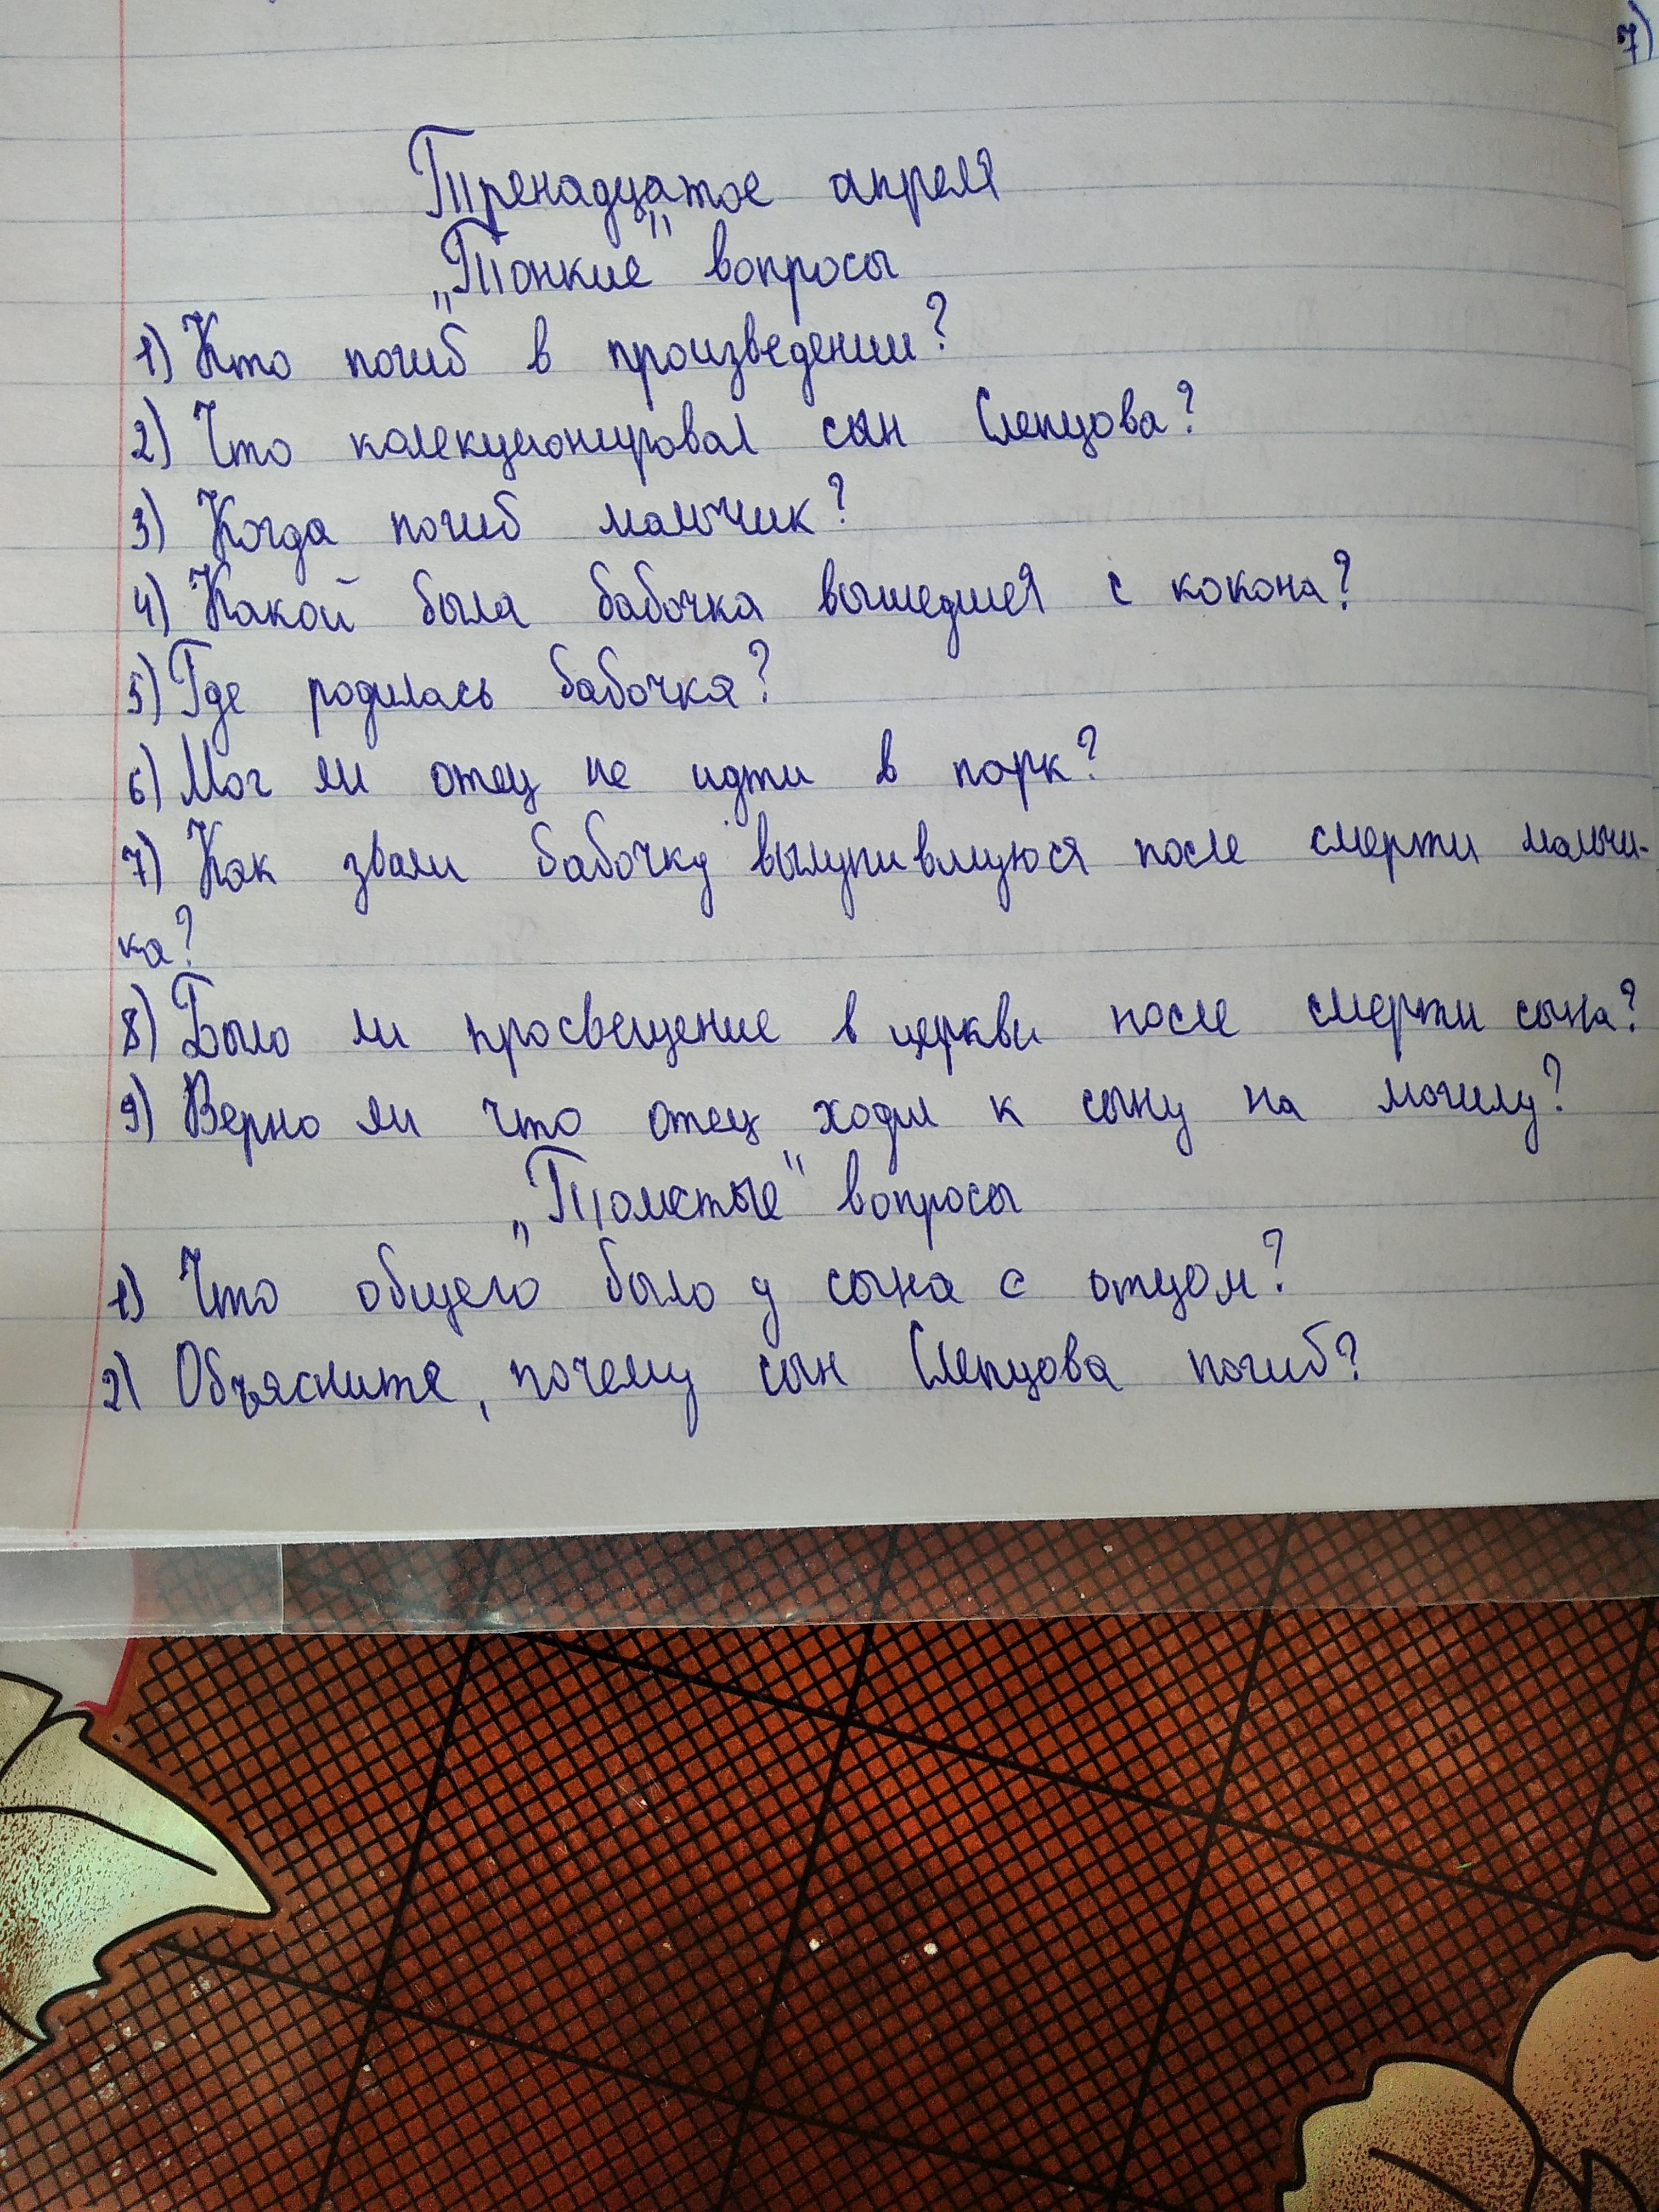 7)
Тренадцатое апреля
„Тонкие" вопросы
1) Кто погиб в произведении?
2) Что колекционировал сын Слепцова?
3) Когда погиб мальчик?
4) Какой была бабочка вышедшея с кокона?
5) Где родилась бабочка?
6) Мог ли отец не идти в парк?
7) Как звали бабочку вылупившуюся после смерти мальчи-
ка?
8) Было ли просвещение в церкви после смерти сына?
9) Верно ли что отец ходил к сыну на могилу?
„Толстые" вопросы
1) Что общего было у сына с отцом?
2) Объясните, почему сын Слепцова погиб?